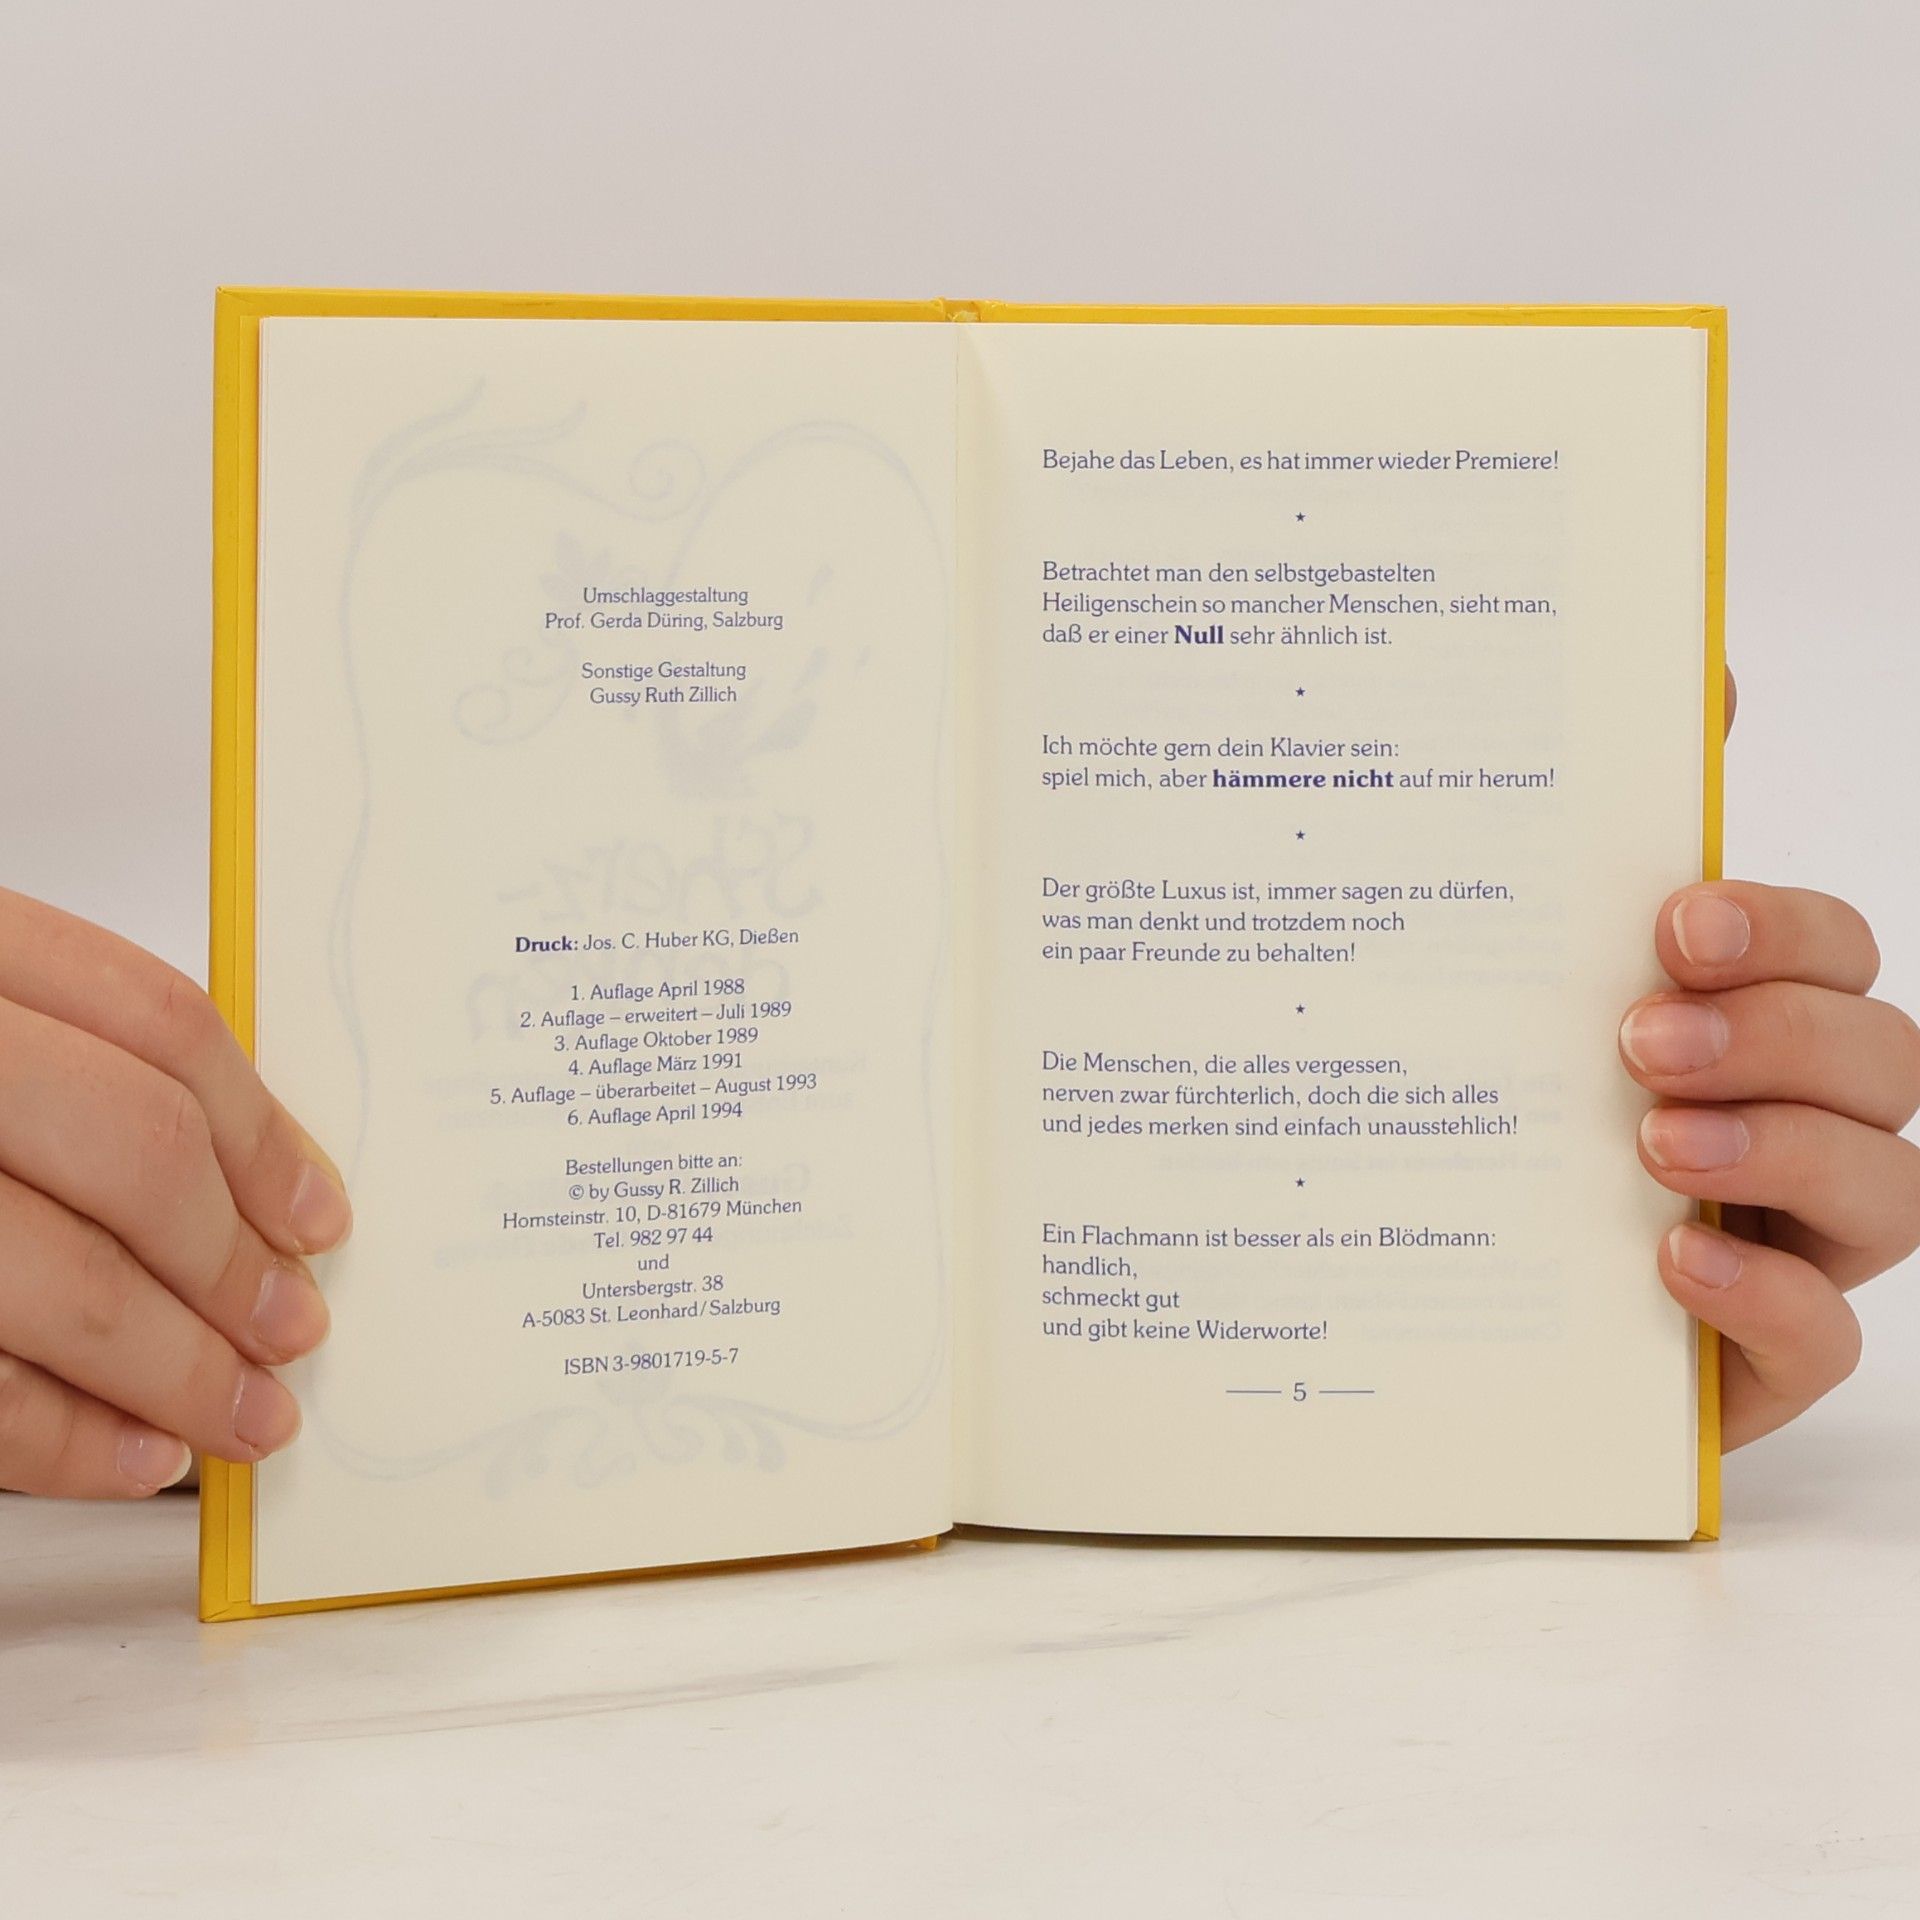 Umschlaggestaltung
Prof. Gerda Düring, Salzburg
Sonstige Gestaltung
Gussy Ruth Zillich
Druck: Jos. C. Huber KG, Dießen
1. Auflage April 1988
2. Auflage – erweitert – Juli 1989
3. Auflage Oktober 1989
4. Auflage März 1991
5. Auflage – überarbeitet – August 1993
6. Auflage April 1994
Bestellungen bitte an:
© by Gussy R. Zillich
Hornsteinstr. 10, D-81679 München
Tel. 982 97 44
und
Untersbergstr. 38
A-5083 St. Leonhard/Salzburg
ISBN 3-9801719-5-7
Bejahe das Leben, es hat immer wieder Premiere!
★
Betrachtet man den selbstgebastelten
Heiligenschein so mancher Menschen, sieht man,
daß er einer Null sehr ähnlich ist.
★
Ich möchte gern dein Klavier sein:
spiel mich, aber hämmere nicht auf mir herum!
★
Der größte Luxus ist, immer sagen zu dürfen,
was man denkt und trotzdem noch
ein paar Freunde zu behalten!
★
Die Menschen, die alles vergessen,
nerven zwar fürchterlich, doch die sich alles
und jedes merken sind einfach unausstehlich!
★
Ein Flachmann ist besser als ein Blödmann:
handlich,
schmeckt gut
und gibt keine Widerworte!
— 5 —